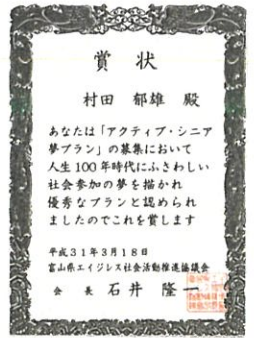 賞状
村田 郁雄 殿
あなたは「アクティブ・シニア
夢プラン」の募集において
人生100年時代にふさわしい
社会参加の夢を描かれ
優秀なプランと認められ
ましたのでこれを賞します
平成31年3月18日
富山県エイジレス社会活動推進協議会
会長 石井 隆一